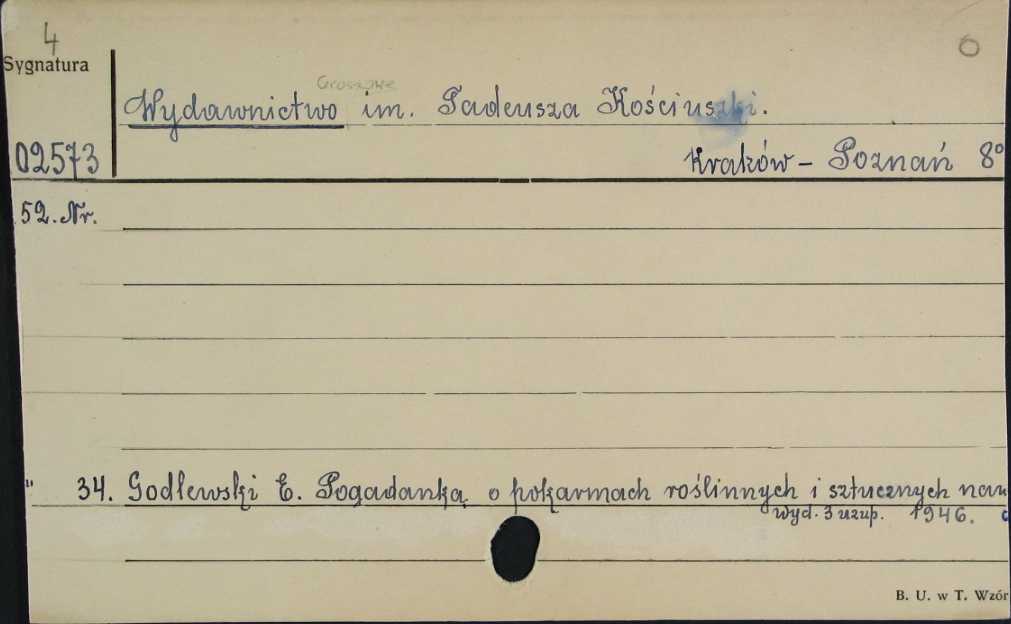 4
Sygnatura
Groszowe
Wydawnictwo im. Tadeusza Kościuszki.
02573
Kraków - Poznań 8°
52. Nr.
" 34. Godlewski E. Pogadanka o pokarmach roślinnych i sztucznych naw
wyd. 3 uzup. 1946.
B. U. w T. Wzór